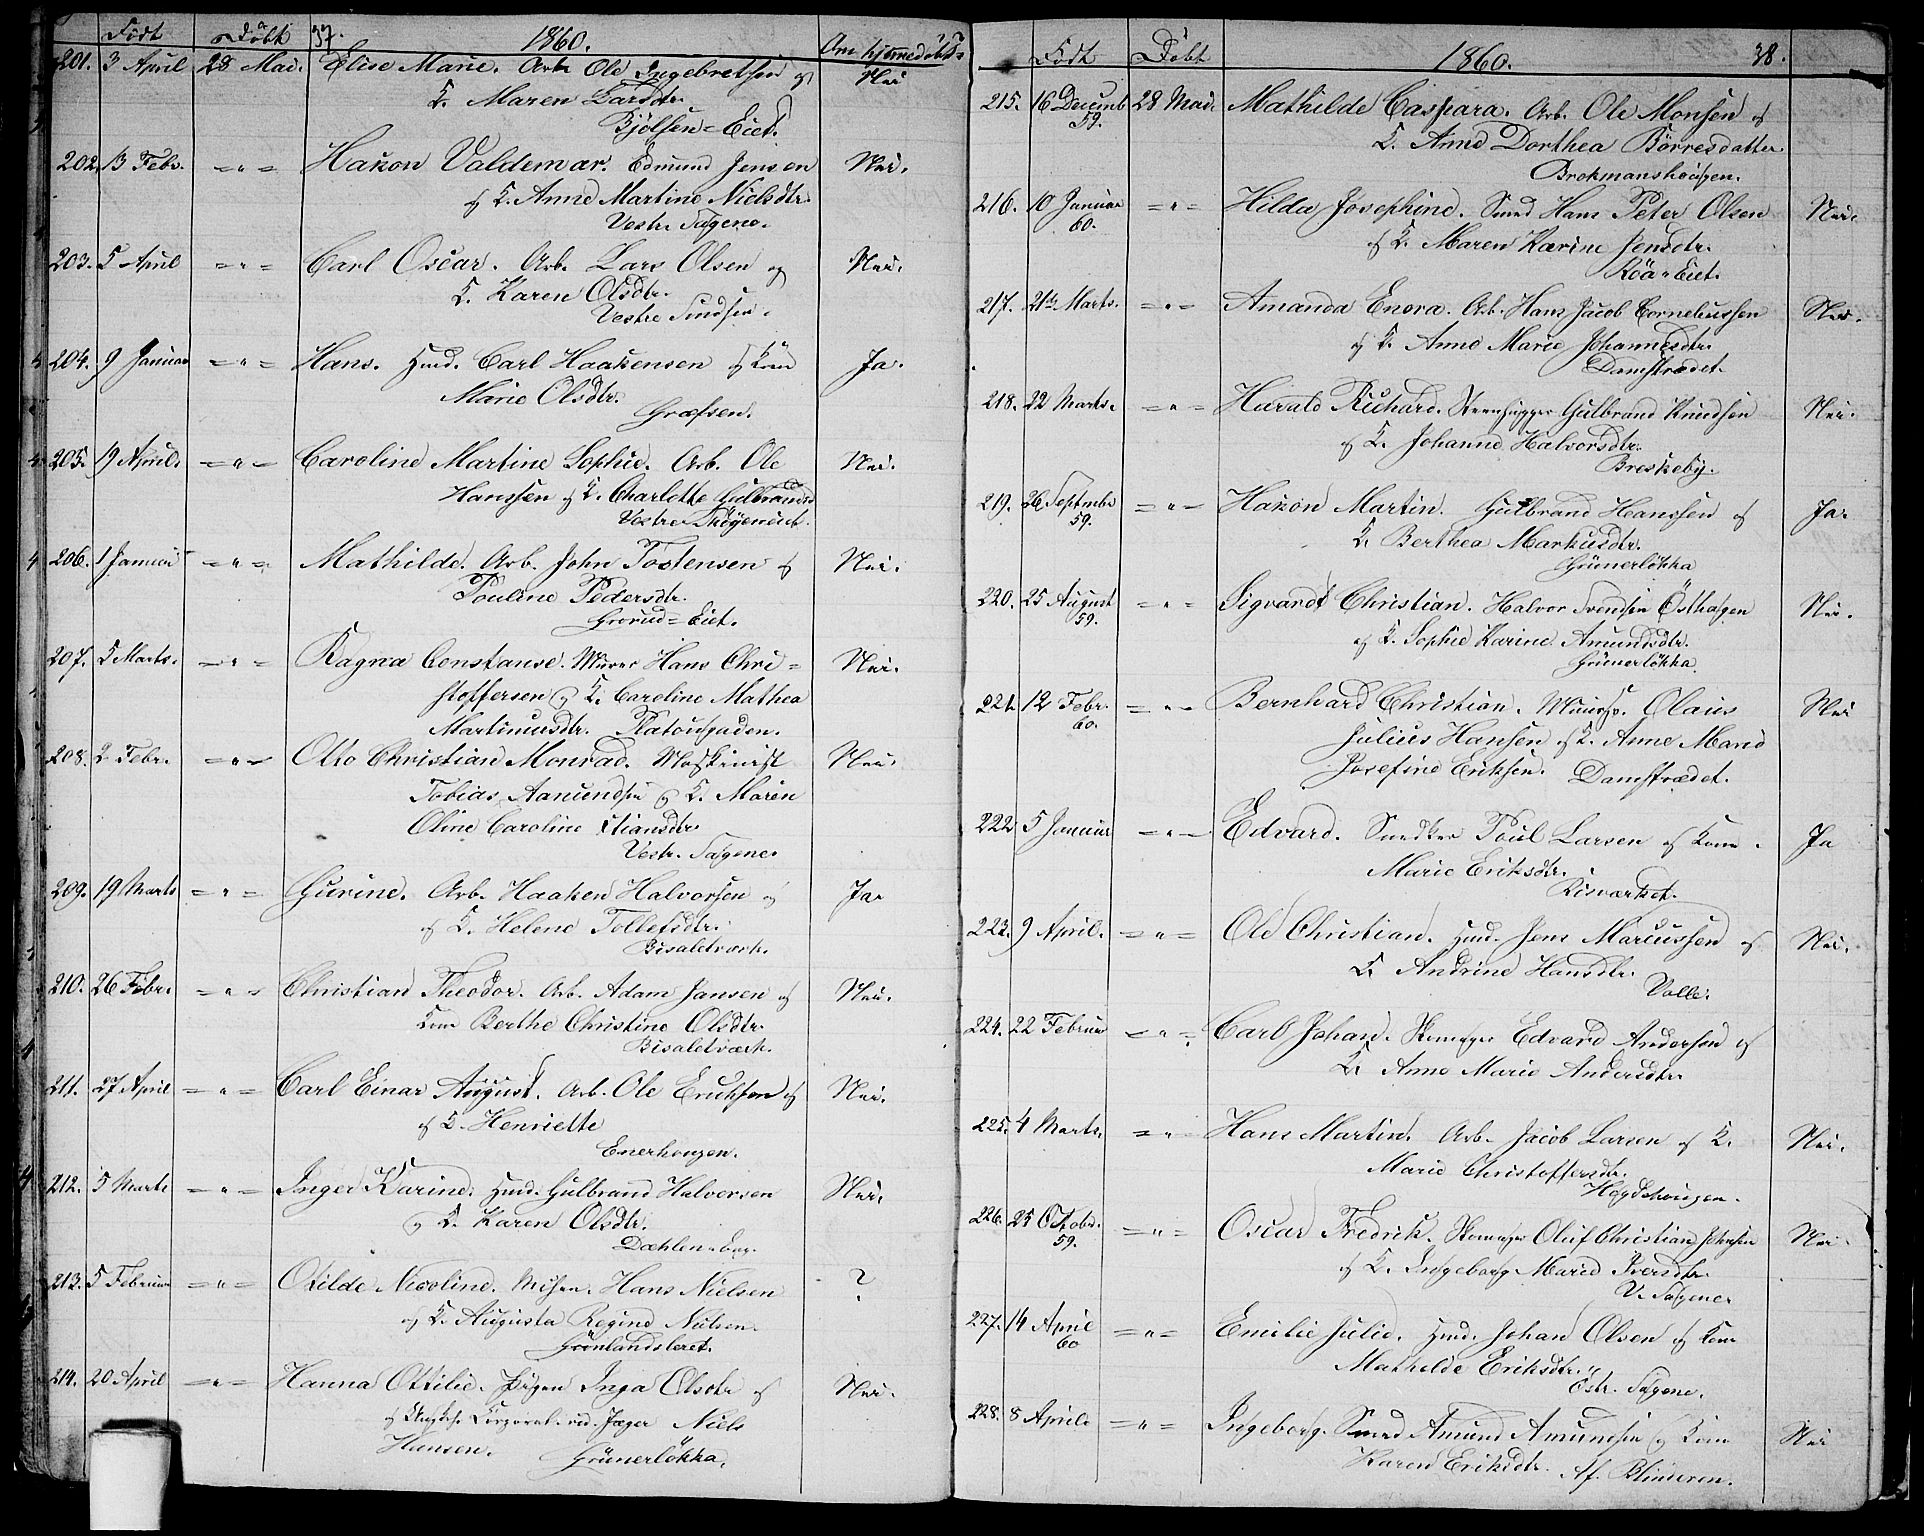 Født Døbt 37. 1860. Om hjemmedøbt?
201. 3 April 28 Mai. Elise Marie. Arb. Ole Ingebretsen og Nei
K. Maren Larsdtr.
Bjølsen=Eiet.
202. 13 Febr. -"- Hakon Valdemar. Edmund Jensen Nei.
og K. Anne Martine Nielsdtr.
Vestr. Sagene.
203. 5 April -"- Carl Oscar. Arb. Lars Olsen og Nei.
K. Karen Olsdtr.
Vestre Sindsen.
204. 9 Januar -"- Hans. Husmd. Carl Haakensen og Kone Ja.
Marie Olsdtr.
Græfsen.
205. 19 April. -"- Caroline Martine Sophie. Arb. Ole Nei.
Hanssen og K. Charlotte Gulbrandsd
Vestre Skøyeneiet.
206. 1 Januar -"- Mathilde. Arb. John Tostensen og Nei.
Pouline Pedersdtr.
Grorud=Eiet.
207. 5 Marts. -"- Ragna Constanse. Murer Hans Chri= Nei.
stoffersen og K. Caroline Mathea
Martinusdtr. Platousgaden.
208. 2 Febr. -"- Otto Christian Monrad. Maskinist Nei.
Tobias Aanundsen og K. Maren
Oline Caroline Stiansdtr.
Vestr. Sagene.
209. 19 Marts -"- Gurine. Arb. Haaken Halvorsen Ja.
og K. Helene Tollefsdtr.
Bisaletværk.
210. 26 Febr. -"- Christian Theodor. Arb. Adam Jansen og Nei.
Kone Berthe Christine Olsdtr.
Bisaletværk.
211. 27 April -"- Carl Einar August. Arb. Ole Eriksen og Nei.
og K. Henriette
Enerhougen.
212. 5 Marts -"- Inger Karine. Husmd. Gulbrand Halvorsen Nei.
og K. Karen Olsdtr.
Dæhlen=Eng.
213. 5 Februar -"- Otilde Nicoline. Hans Nielsen ?
og K. Augusta Regine Nielsen.
Grønlandsleret.
214. 20 April -"- Hanna Ottilie. Pigen Inga Olsdtr. og Nei.
og Corporal ved Jæger Niels
Hansen. Grünerløkka.
Født Døbt 1860. 38.
215. 16 Decemb 59. 28 Mai. Mathilde Caspara. Arb. Ole Monsen og
K. Anne Dorthea Børresdatter.
Brokmanshougen.
216. 10 Januar 60. -"- Hilda Josephine. Smed Hans Peter Olsen Nei.
og K. Maren Karine Jensdtr.
Røa=Eiet.
217. 21de Marts. -"- Amanda Enora. Arb. Hans Jacob Corneliussen Nei.
og K. Anne Marie Johannesdtr.
Damstrædet.
218. 22 Marts. -"- Harald Richard. Steenhugger Gulbrand Knudsen Nei.
og K. Johanne Halvorsdtr.
Breskeby.
219. 26 Septmbr 59. -"- Hakon Martin. Gulbrand Hanssen og Ja.
K. Berthea Markusdtr.
Grünerløkka
220. 25 August 59. -"- Sigvardt Christian. Halvor Svendsen Østhagen Nei.
og K. Sophie Karine Amundsdtr.
Grünerløkka
221. 12 Febr. 60. -"- Bernhard Christian. Olaus Nei
Julius Hansen og K. Anne Marie
Josefine Eriksen. Damstrædet.
222. 5 Januar -"- Edvard. Snedker Poul Larsen og Kone Ja
Marie Eriksdtr.
Risværket.
223. 9 April. -"- Ole Christian. Husmd. Jens Marcussen og Nei.
K. Andrine Hansdtr.
Valle.
224. 22 Februar -"- Carl Johan. Skomager Edvard Andersen og
K. Anne Marie Andersdtr.
225. 4 Marts. -"- Hans Martin. Arb. Jacob Larsen og K. Nei.
Marie Christoffersdtr.
Høydehougen.
226. 25 Octobr. 59. -"- Oscar Fredrik. Skomager Oluf Christian Johnsen Nei.
og K. Ingeborg Marie Iversdtr.
V. Sagene.
227. 14 April 60 -"- Emilie Julie. Husmd. Johan Olsen og Kone
Mathilde Eriksdtr.
Østr. Sagene.
228. 8 April. -"- Ingeborg. Smed Amund Amundsen og Kone Nei
Karen Eriksdtr. Af. Blinderen.